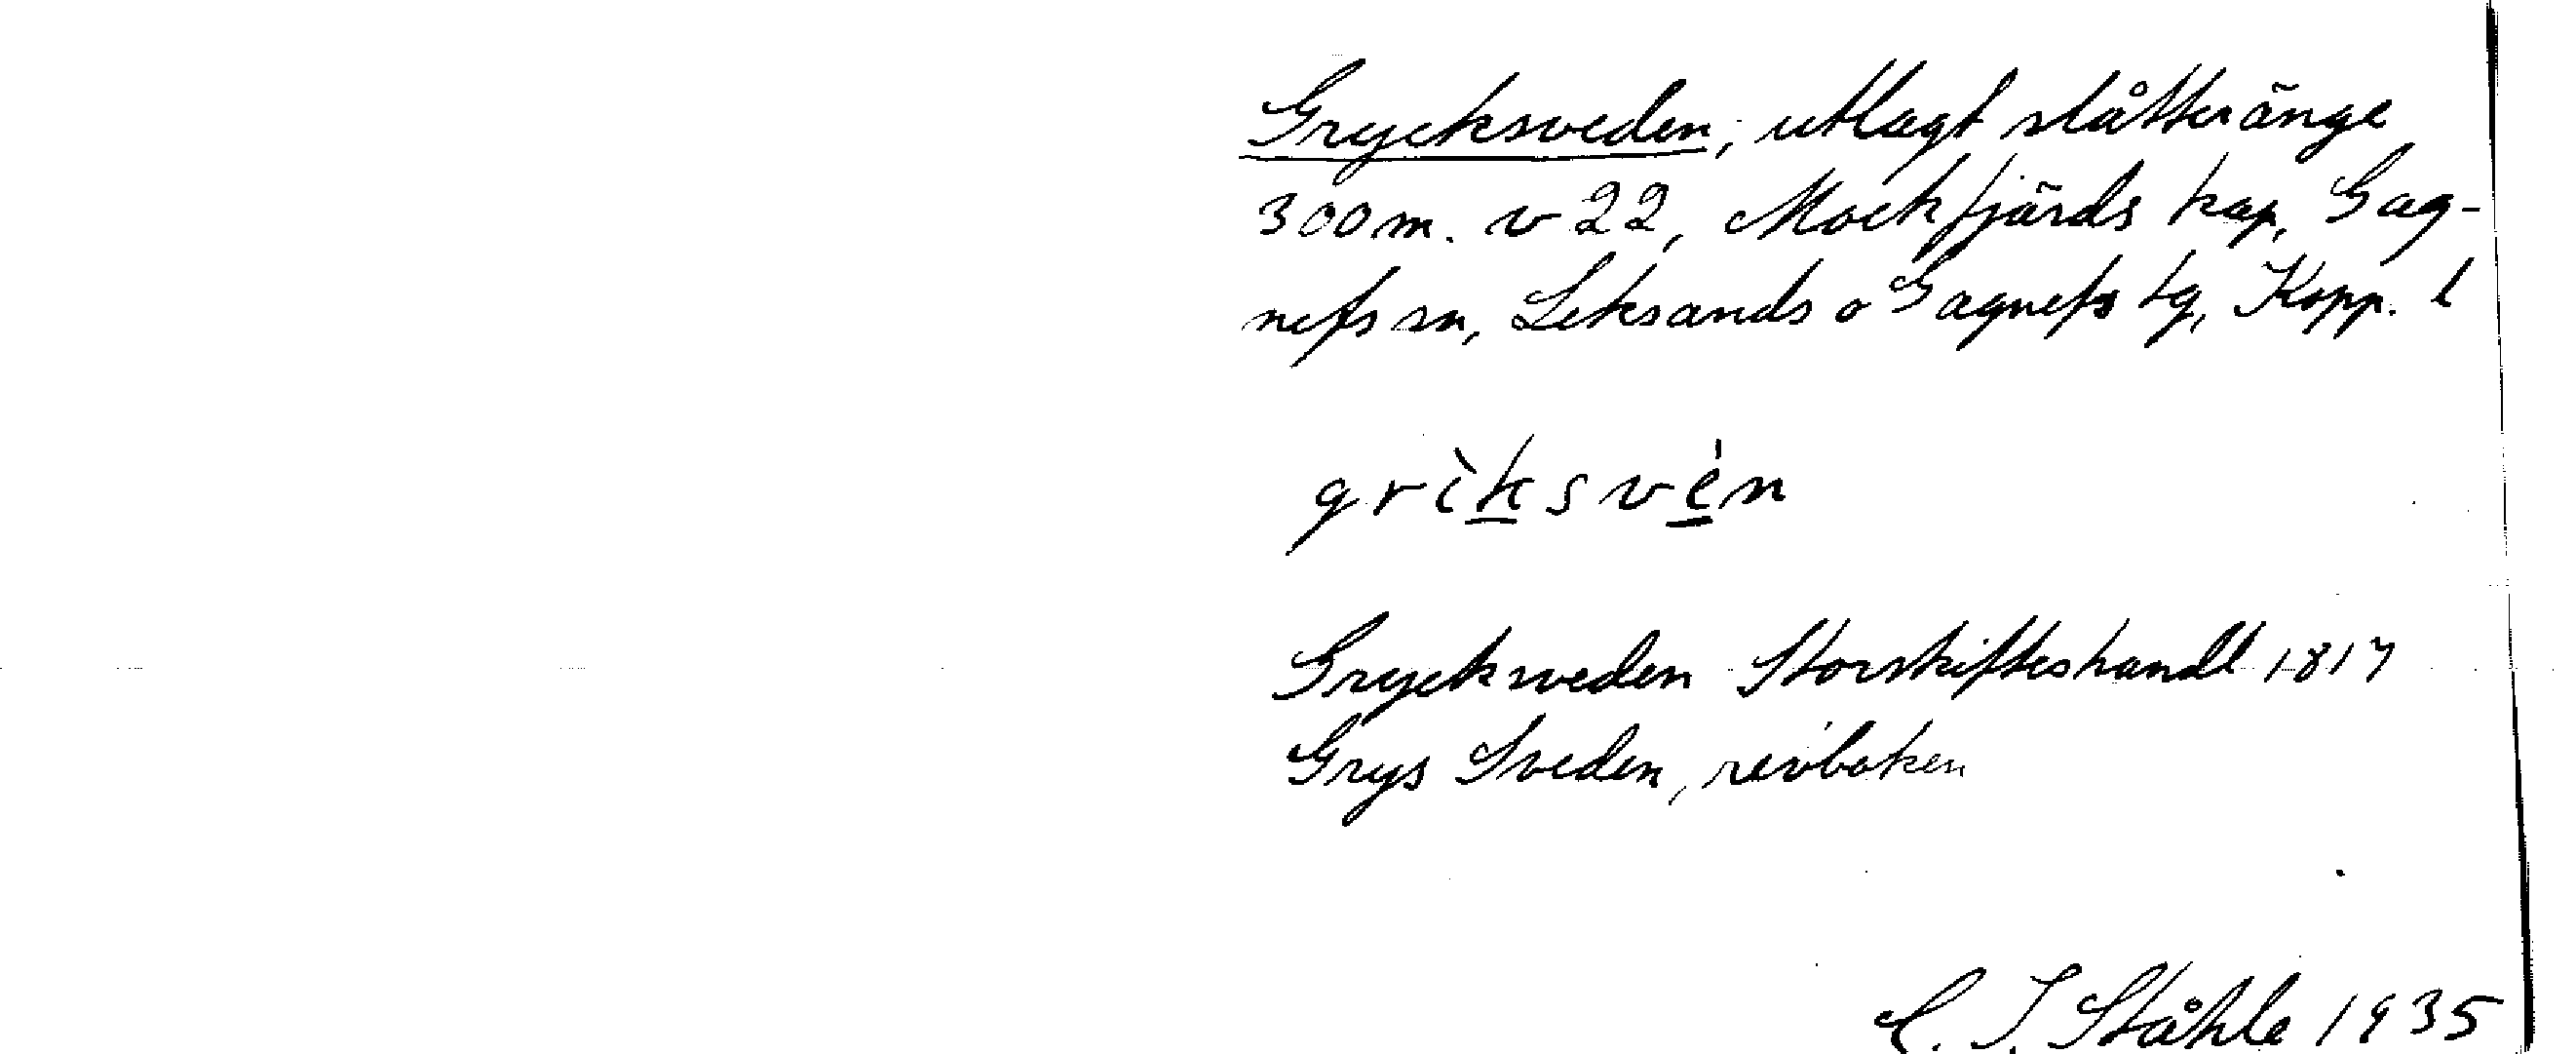 Grycksveden, utlagt slåtteränge
300 m. v 22, Mockfjärds kap, Gag-
nefs sn, Leksands o Gagnefs tg, Kopp. l
grìksvèn
Grycksveden Storskifteshandl 1817
Grys Sveden, revboken
C. I. Ståhle 1935